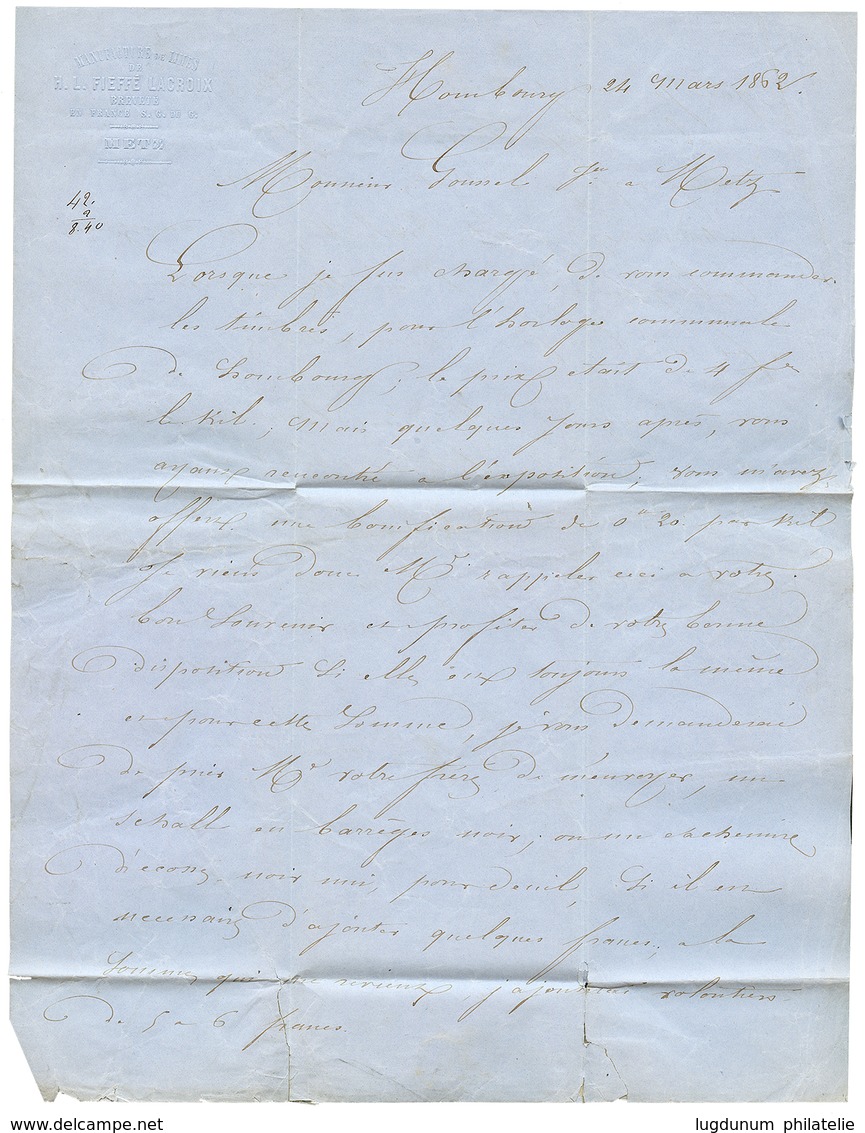 MANUFACTURE DE LIMES
DE
H. L. FIEFFÉ LACROIX
BREVETÉ
EN FRANCE S. G. D. G.
METZ
Hombourg 24 Mars 1862.
42.
2
8.40
Monsieur Goussel Jne a Metz
Lorsque je fus chargé, de vous commander
les timbres, pour l'horloge communale
de hombourg; le prix etait de 4 fr
le kil.; mais quelques jours après, vous
ayant rencontré a l'exposition; vous m'avez
offert une bonification de 0 20 par kil
Je viens donc Mr rappeler ceci a votre
bon Souvenir et profiter de votre bonne
disposition Si elle est toujours la même
et pour cette Somme, je vous demanderai
de prier Mr votre frère de m'envoyer, un
schall en barrèges noir; ou un cachemire
d'ecosse noir uni, pour deuil, Si il est
necessaire d'ajouter quelques francs, a la
Somme qui me revient, j'ajouterai volontiers
de 5 a 6 francs.
www.delcampe.net
lugdunum philatelie